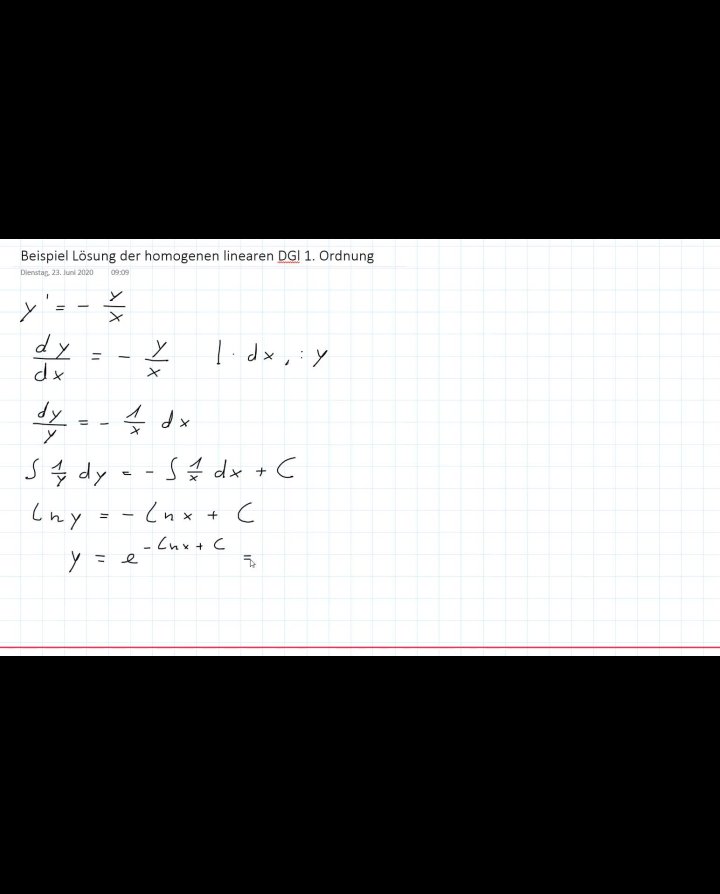 Beispiel Lösung der homogenen linearen DGl 1. Ordnung
Dienstag, 23. Juni 2020 09:09
y' = - y/x
dy/dx = - y/x | · dx, : y
dy/y = - 1/x dx
∫ 1/y dy = - ∫ 1/x dx + C
ln y = - ln x + C
y = e^(- ln x + C) =